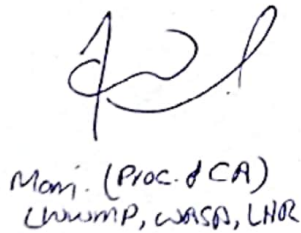 Manj. (Proc. & CA)
LWWMP, WASA, LHR